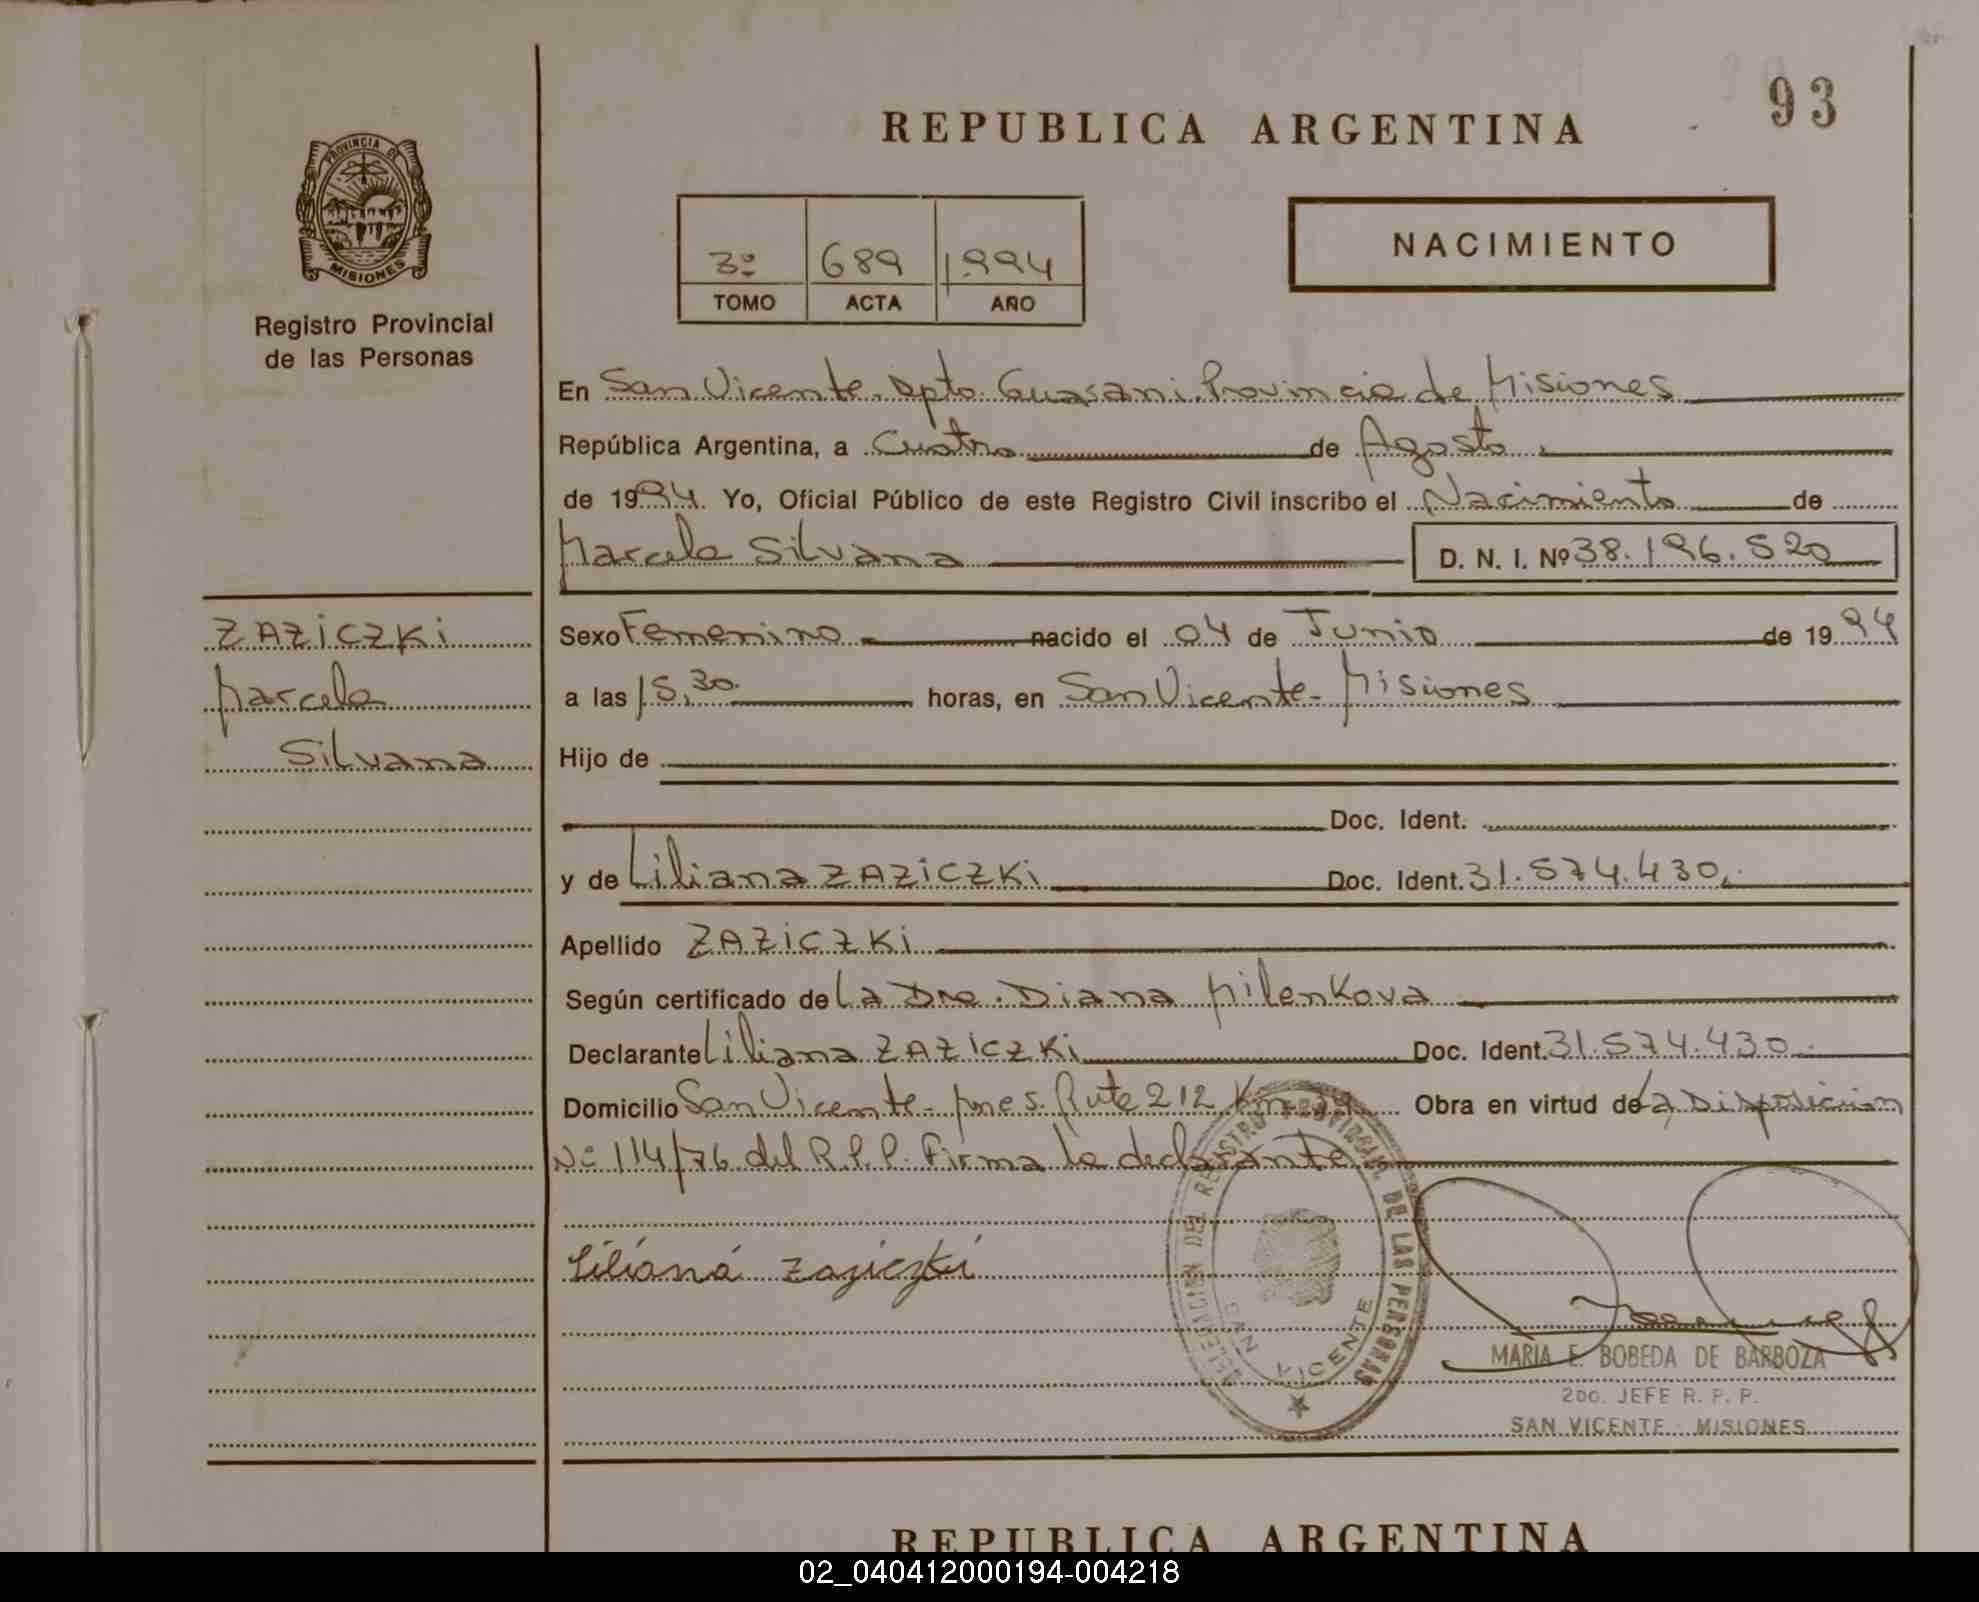 93
REPUBLICA ARGENTINA
PROVINCIA DE
MISIONES
Registro Provincial
de las Personas
3º 689 1994
TOMO ACTA AÑO
NACIMIENTO
En San Vicente, Dpto. Guaraní, Provincia de Misiones
República Argentina, a Cuatro de Agosto
de 1994. Yo, Oficial Público de este Registro Civil inscribo el Nacimiento de
Marcela Silvana D. N. I. Nº 38.196.520
ZAZiCZKi
Marcela
Silvana
Sexo Femenino nacido el 04 de Junio de 1994
a las 15,30 horas, en San Vicente - Misiones
Hijo de
Doc. Ident.
y de Liliana ZAZiCZKi Doc. Ident. 31.574.430.
Apellido ZAZiCZKi
Según certificado de La Dra. Diana Milenkova
Declarante Liliana ZAZICZKi Doc. Ident. 31.574.430.
Domicilio San Vicente - Mnes. Ruta 212 Km Obra en virtud de La Disposición
Nº 114/76 del R.P.P. Firma la declarante
Liliana Zaziczki
DELEGACION DEL REGISTRO PROVINCIAL DE LAS PERSONAS
SAN VICENTE
MARIA E. BOBEDA DE BARBOZA
2DO. JEFE R. P. P.
SAN VICENTE - MISIONES
REPUBLICA ARGENTINA
02_040412000194-004218